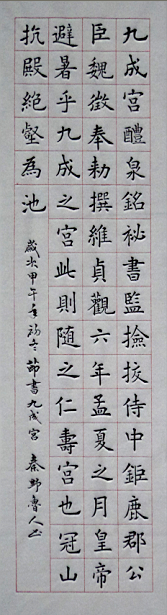 九成宮醴泉銘祕書監撿挍侍中鉅鹿郡公
臣魏徵奉勅撰維貞觀六年孟夏之月皇帝
避暑乎九成之宮此則隨之仁壽宮也冠山
抗殿絕壑為池
歲次甲午年初冬節書九成宮 秦野魯人